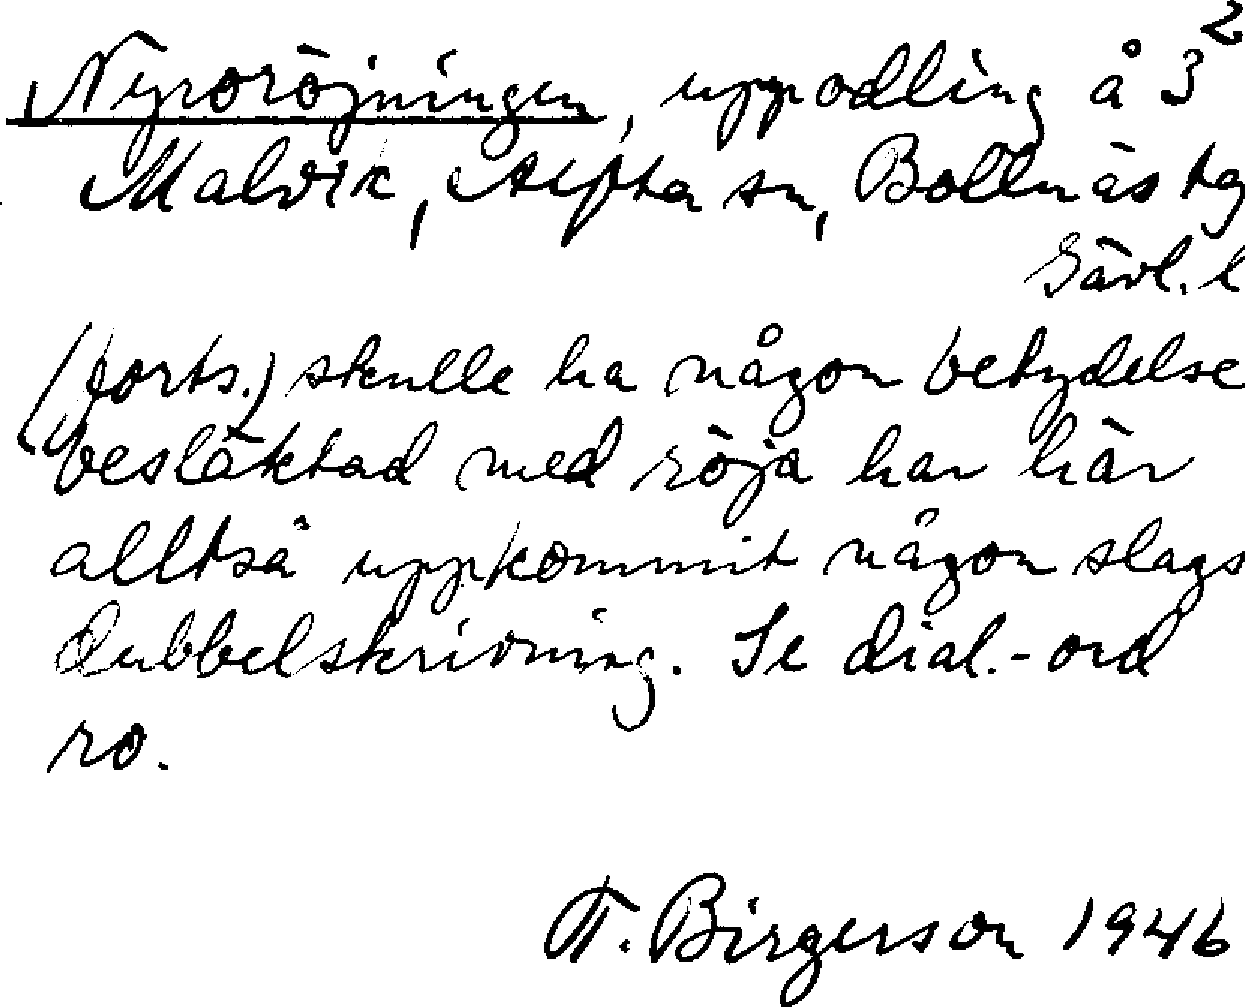 2
Nyroröjningen, uppodling å 3
Malvik, Alfta sn, Bollnäs tg
Gävl. l
(forts.) skulle ha någon betydelse
besläktad med röja har här
alltså uppkommit någon slags
dubbelskrivning. Se dial.-ord
ro.
T. Birgerson 1946